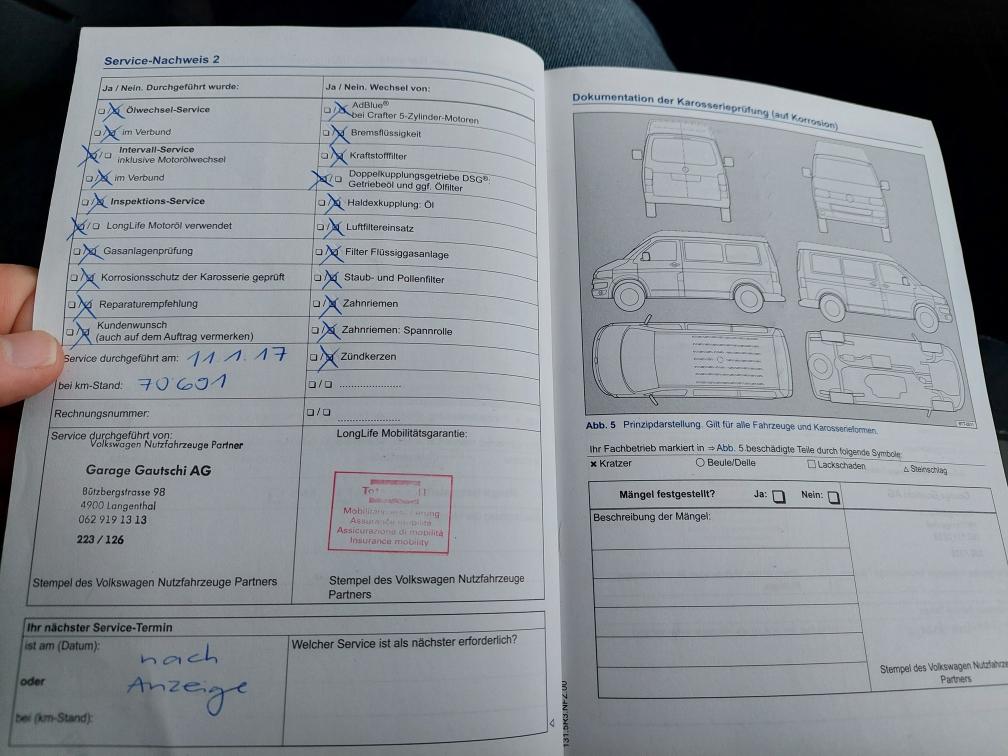 Service-Nachweis 2
Ja / Nein. Durchgeführt wurde:
Ölwechsel-Service
im Verbund
Intervall-Service
inklusive Motorölwechsel
im Verbund
Inspektions-Service
LongLife Motoröl verwendet
Gasanlagenprüfung
Korrosionsschutz der Karosserie geprüft
Reparaturempfehlung
Kundenwunsch
(auch auf dem Auftrag vermerken)
Service durchgeführt am: 11.1.17
bei km-Stand: 70601
Rechnungsnummer:
Ja / Nein. Wechsel von:
AdBlue®
bei Crafter 5-Zylinder-Motoren
Bremsflüssigkeit
Kraftstofffilter
Doppelkupplungsgetriebe DSG®:
Getriebeöl und ggf. Ölfilter
Haldexkupplung: Öl
Luftfiltereinsatz
Filter Flüssiggasanlage
Staub- und Pollenfilter
Zahnriemen
Zahnriemen: Spannrolle
Zündkerzen
Service durchgeführt von:
Volkswagen Nutzfahrzeuge Partner
Garage Gautschi AG
Bützbergstrasse 98
4900 Langenthal
062 919 13 13
223 / 126
Stempel des Volkswagen Nutzfahrzeuge Partners
LongLife Mobilitätsgarantie:
Assurance mobilité
Assicurazione di mobilità
Insurance mobility
Stempel des Volkswagen Nutzfahrzeuge
Partners
Ihr nächster Service-Termin
ist am (Datum):
nach
oder
Anzeige
bei (km-Stand):
Welcher Service ist als nächster erforderlich?
Dokumentation der Karosserieprüfung (auf Korrosion)
Abb. 5 Prinzipdarstellung. Gilt für alle Fahrzeuge und Karosserieformen.
Ihr Fachbetrieb markiert in ⇒ Abb. 5 beschädigte Teile durch folgende Symbole:
× Kratzer ○ Beule/Delle □ Lackschaden △ Steinschlag
Mängel festgestellt? Ja: Nein:
Beschreibung der Mängel:
Stempel des Volkswagen Nutzfahrze
Partners
131.5R3.NFZ.00